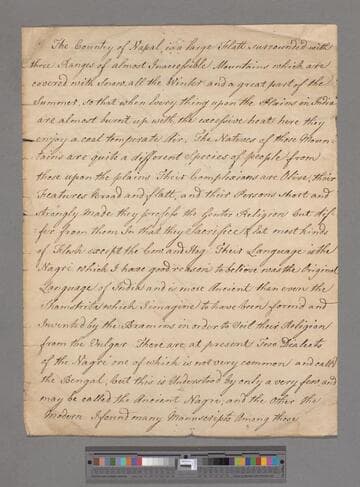 The Country of Napal, is a large Flatt surrounded with
three Ranges of almost Inaccessible Mountains which are
covered with Snow all the Winter and a great part of the
Summer, so that when every thing upon the Plains in India
are almost burnt up with the excessive heat here they
enjoy a cool temperate Air. The Natives of those Moun-
tains are quite a different Species of people from
those upon the plains Their Complexions are Olive, their
Features broad and flatt, and their Persons Short and
Strongly made they profess the Gentoo Religion but dif-
fer from them In that they Sacrifice & Eat most kinds
of Flesh except the Cow and Hog. Their Language is the
Nagri which I have good reason to believe was the Original
Language of India and is more Ancient than even the
Shanskrita which I imagine to have been formed and
Invented by the Bramins in order to Veil their Religion
from the Vulgar There are at present Two Dialects
of the Nagri one of which is not very common and call'd
the Bengal, but this is Understood by only a very few and
may be called the Ancient Nagri, and the other the
Modern I found many Manuscripts Among those